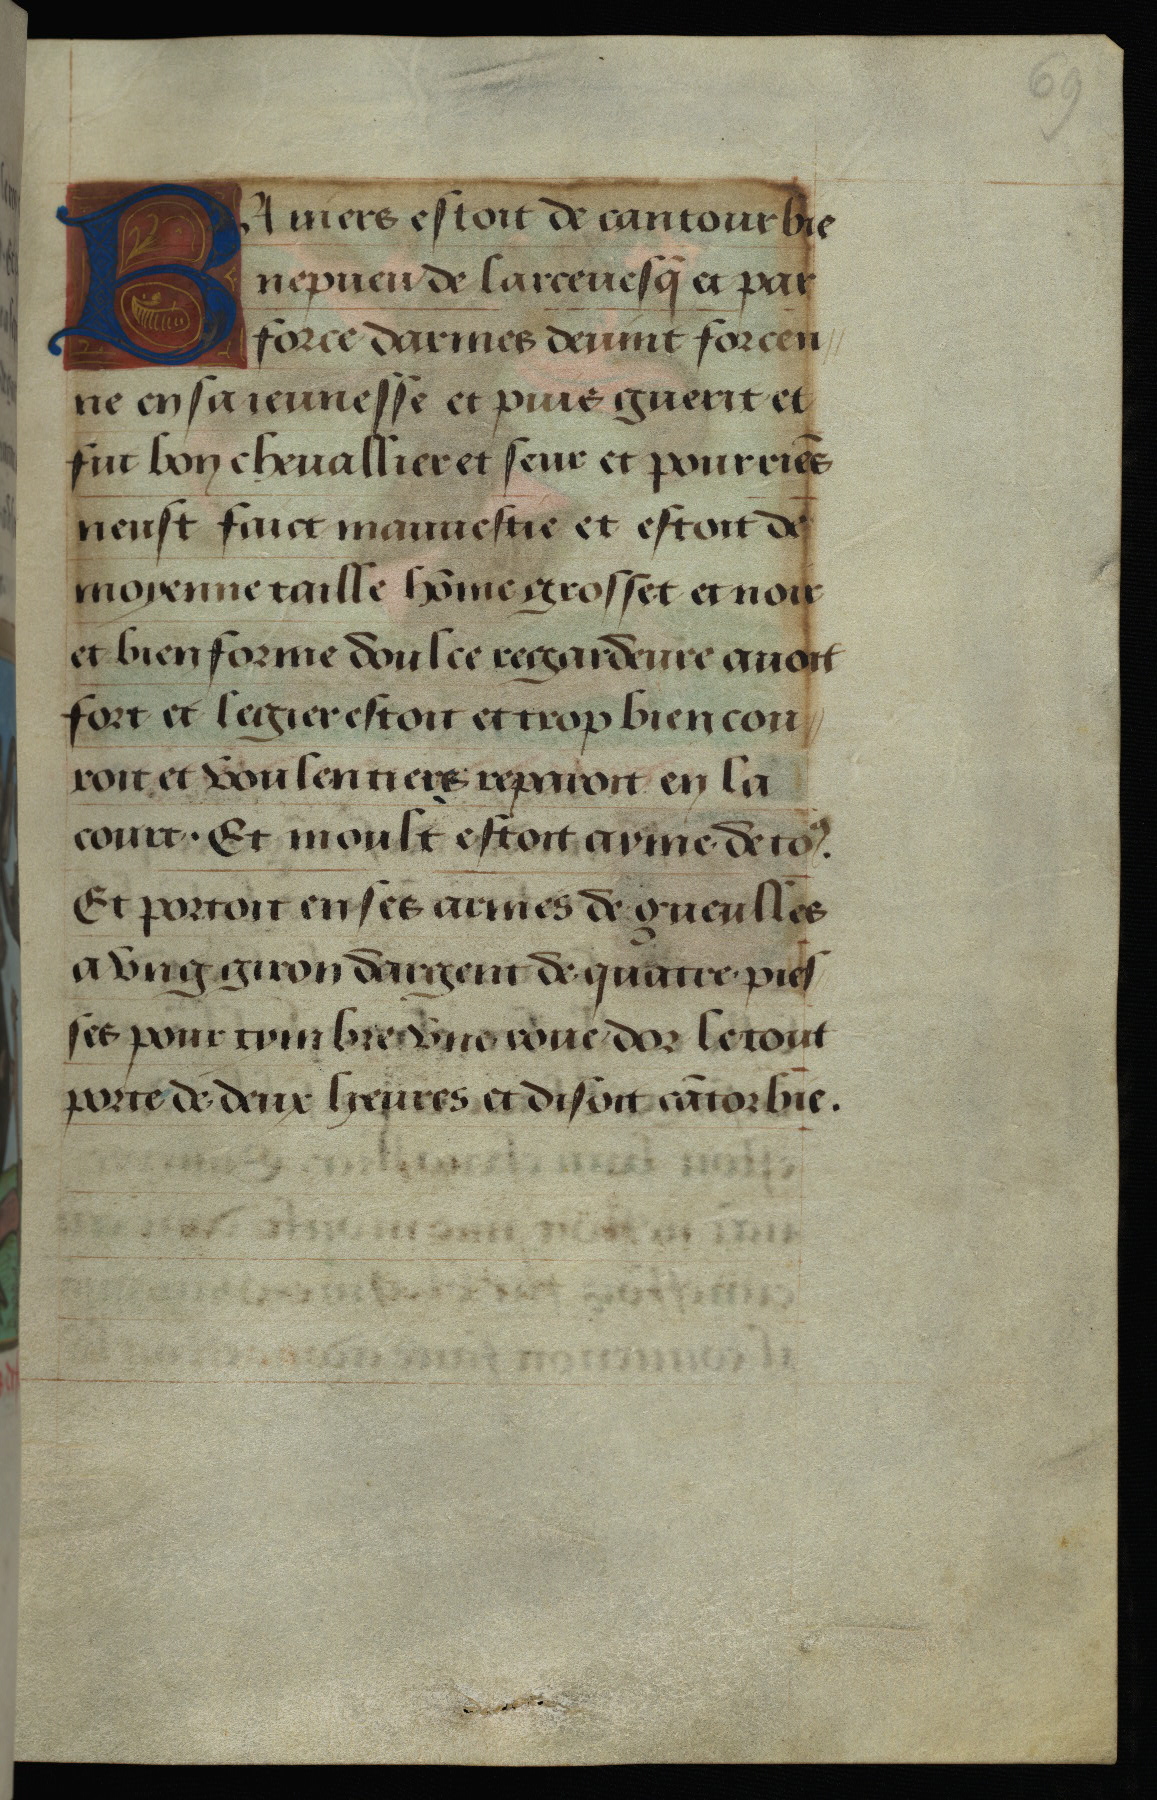 69
BAniers estoit de cantourbie
nepueu de larceuesq̄ et par
force darmes deuint forcen//
ne en sa ieunesse et puis guerit et
fut bon cheuallier et seur et pour riēs
neust faict mauuestie et estoit de
moyenne taille hōme grosset et noir
et bien forme doulce regardeure auoit
fort et legier estoit et trop bien cou//
roit et voulentiers reparoit en la
court. Et moult estoit arme de to9.
Et portoit en ses armes de gueulles
a vng giron dargent de quatre pies
ses pour tymbre vne roue dor le tout
porte de deux heures et disoit cātorbie.